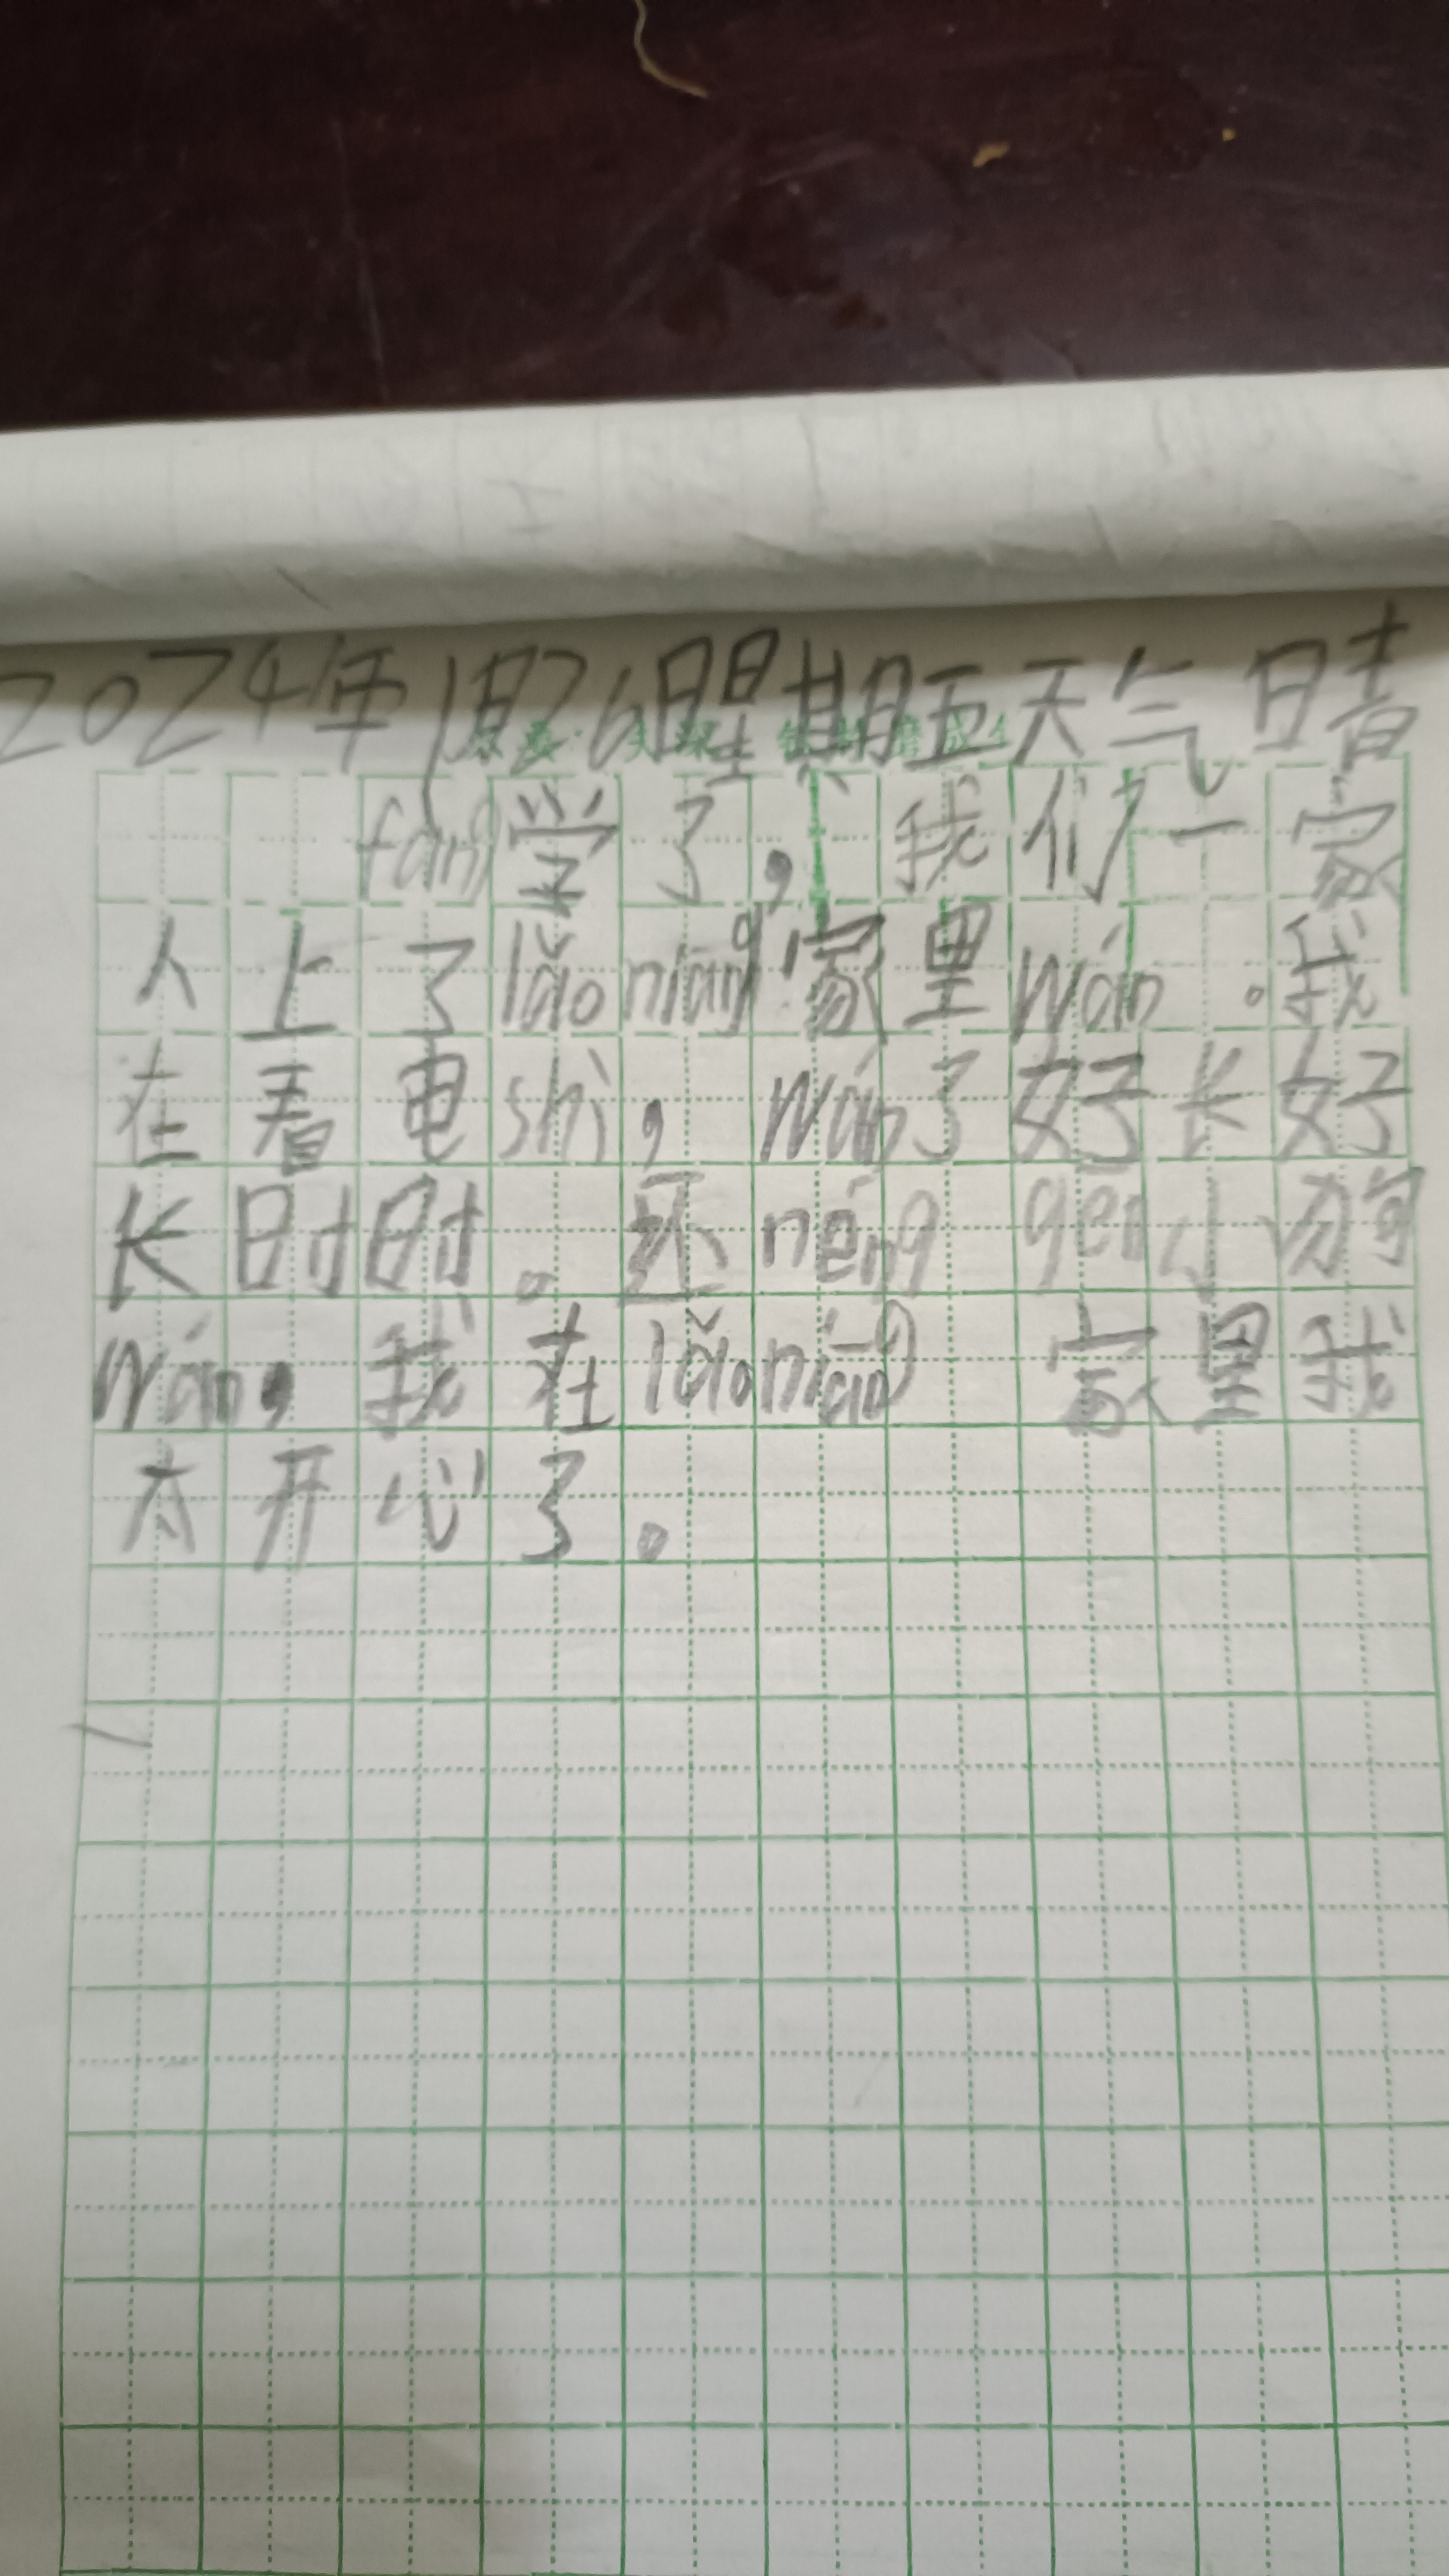 2024年1月26日星期五天气晴
fàng学了，我们一家
人上了lǎo niáng家里wán。我
在看电shì，wán了好长好
长时时。还néng gēn小狗
wán，我在lǎo niáng家里我
太开心了。